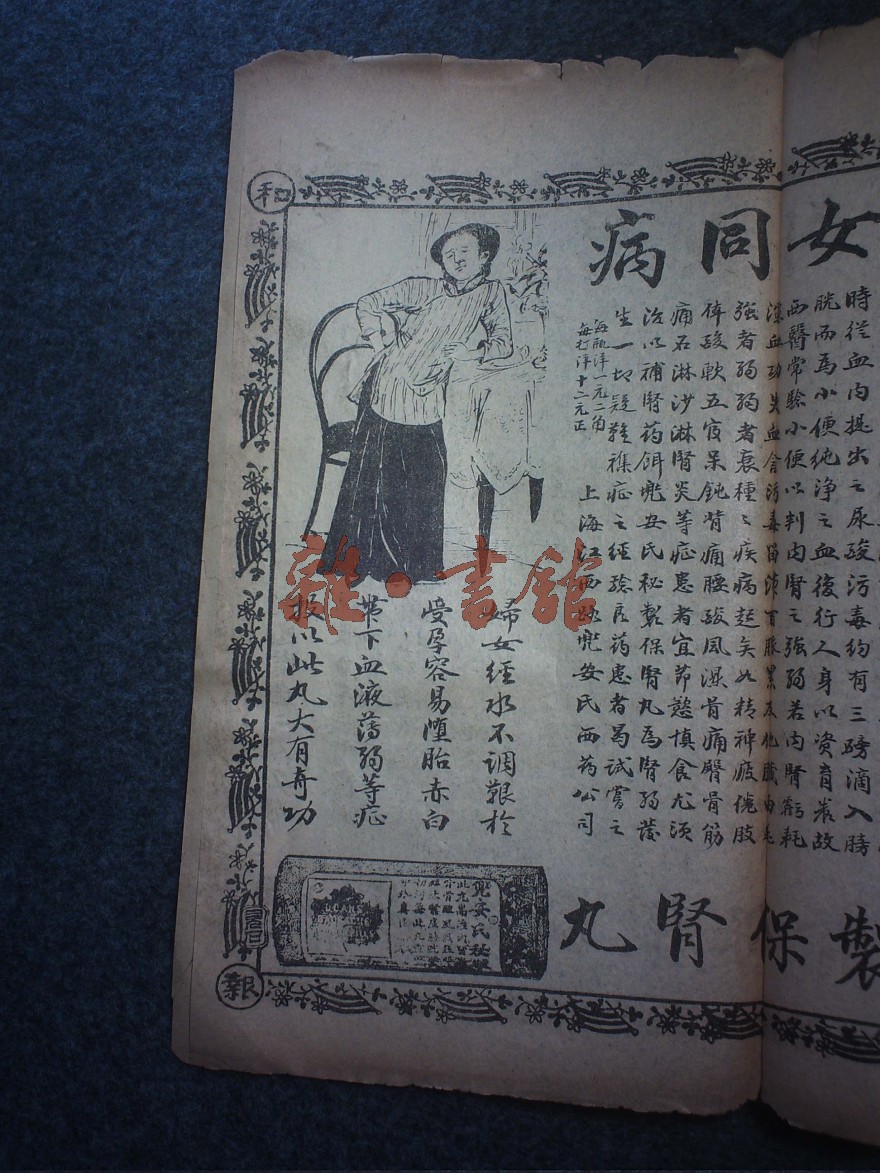 女同病
時從血內提出之尿酸污毒約有三磅滴入膀
胱而為小便純淨之血復行人身以資育養故
西醫常驗小便以判內腎之強弱若內腎虧耗
強者弱弱者衰種種疾病起矣如精神疲倦肢
体酸軟五官呆鈍背痛腰酸風濕骨痛臀骨筋
痛石淋沙淋腎炎等症患者宜節慾慎食尤須
治以補腎藥餌兜安氏秘製保腎丸為腎弱發
生一切疑難襍症之經驗良药患者曷試嘗之
每瓶洋一元二角
每打洋十二元正
上海江西路兜安氏西药公司
婦女經水不调艱於
受孕容易墮胎赤白
帶下血液薄弱等症
投以此丸大有奇功
兜安氏秘
製保腎丸
和
報
雜·書館